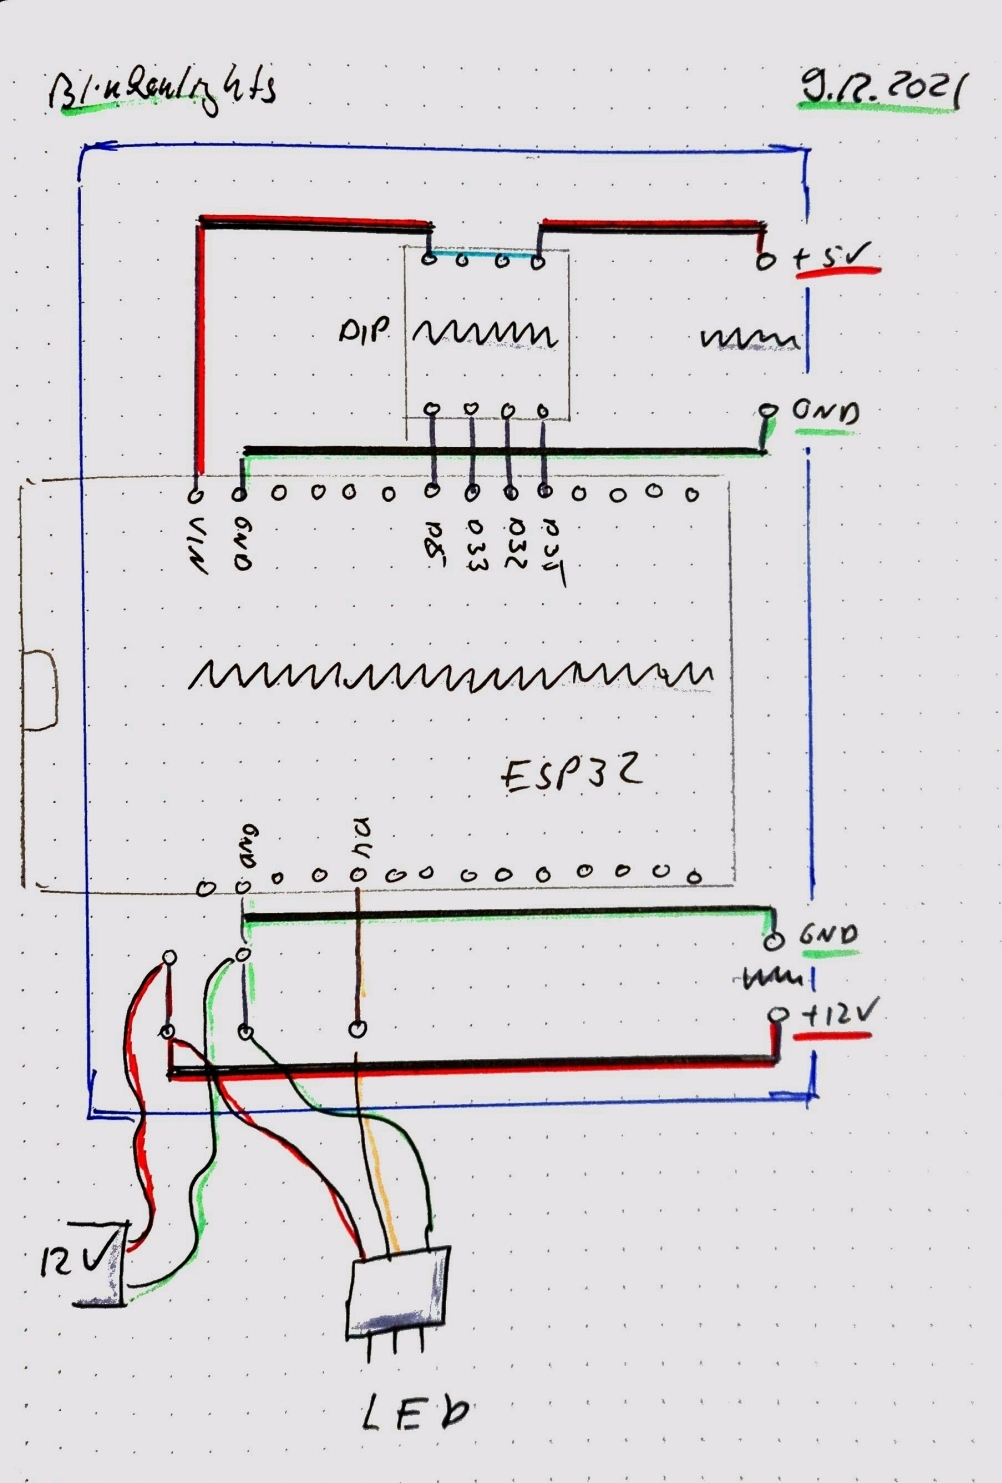 Blinkenlights
9.12.2021
+ 5V
DIP
GND
VIN
GND
D33
D32
D35
ESP32
GND
D4
GND
+12V
12V
LED